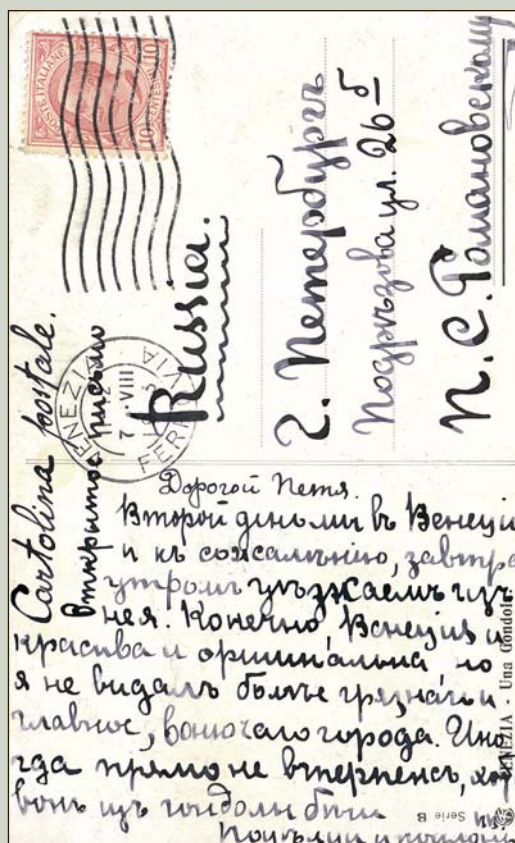 POSTE ITALIANE
10
10
Cartolina postale.
Открытое письмо
VENEZIA
7 VIII
FERROVIA
Russia.
г. Петербургъ
Подрѣзова ул. 26 б
П. С. Романовскому
Дорогой Петя.
Второй день мы въ Венеціи
и къ сожалѣнію, завтра
утромъ уѣзжаемъ изъ
нея. Конечно, Венеція и
красива и оригинальна, но
я не видалъ болѣе грязнаго и
главное, вонючаго города. Ино
гда прямо не втерпежъ, хоть
вонъ изъ гондолы бѣги
VENEZIA - Una Gondola
Serie B